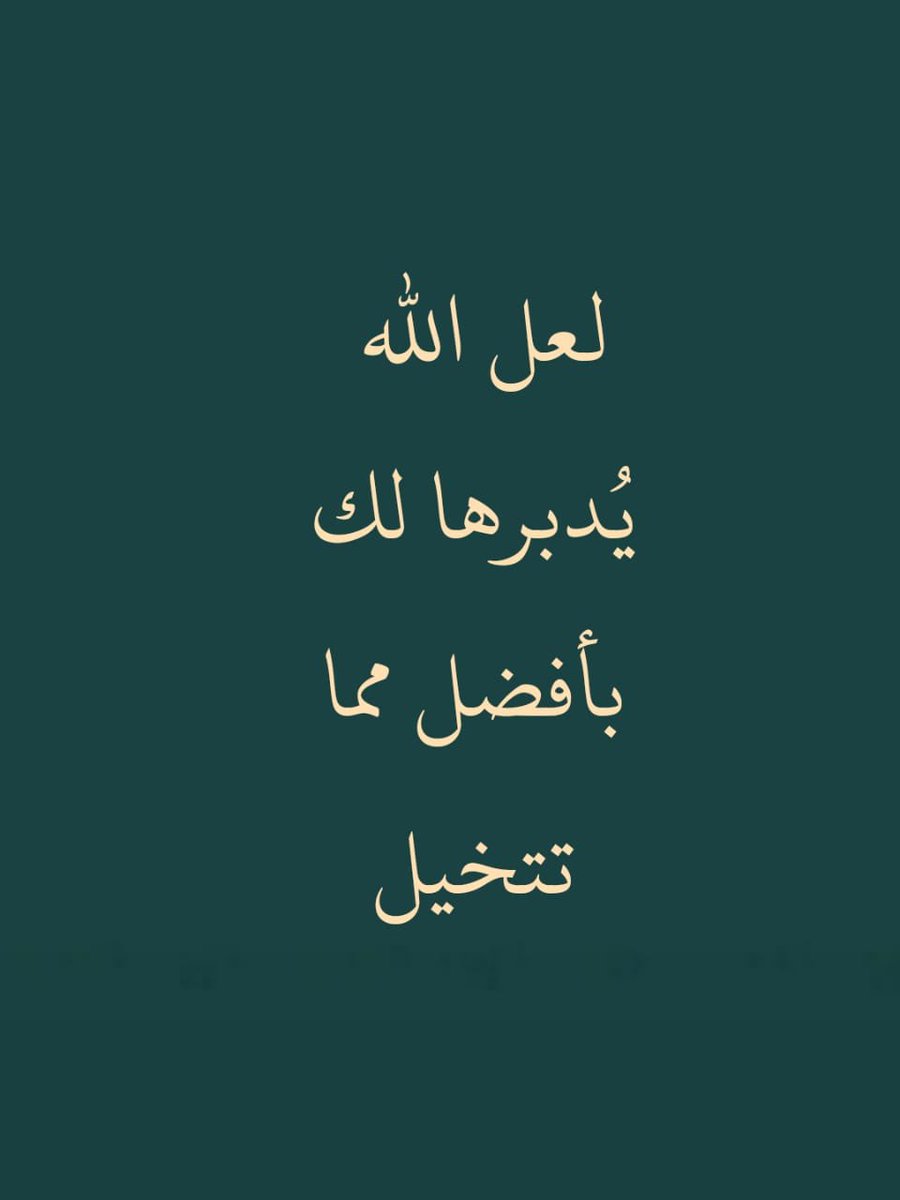 لعل الله
يُدبرها لك
بأفضل مما
تتخيل